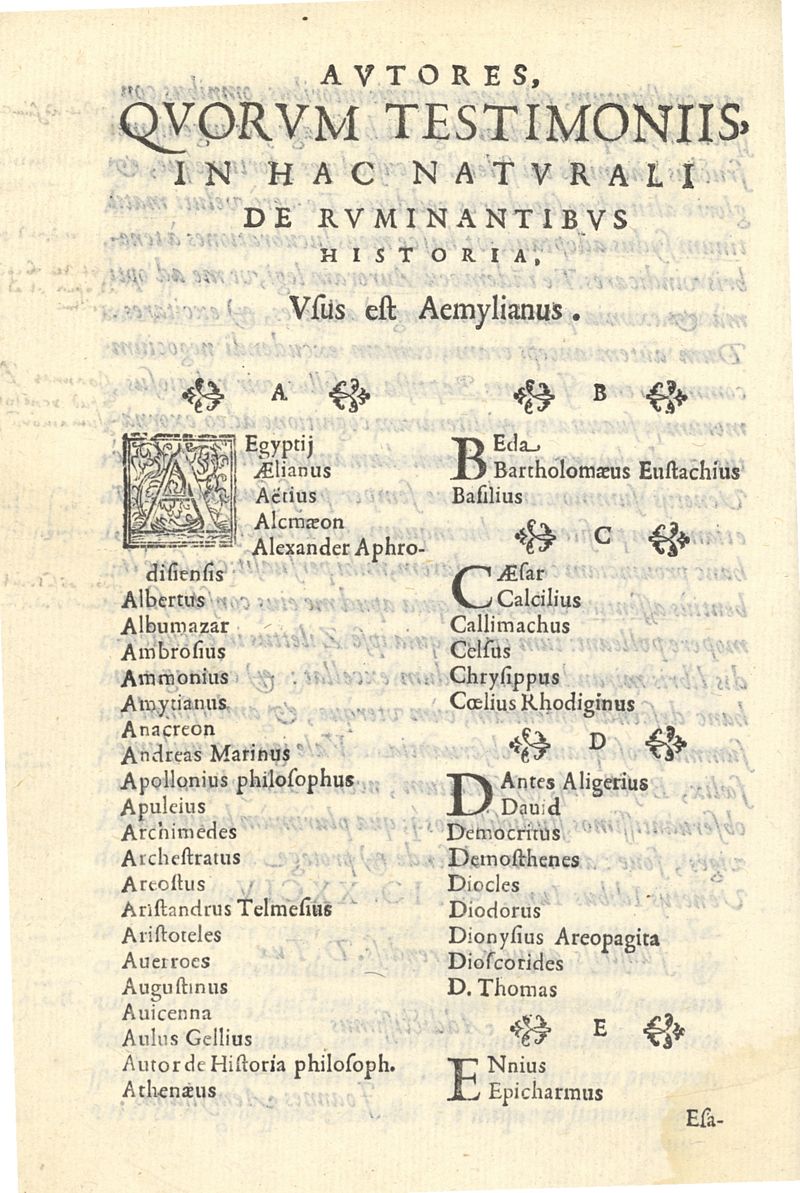 AVTORES,
QVORVM TESTIMONIIS,
IN HAC NATVRALI
DE RVMINANTIBVS
HISTORIA,
Vſus eſt Aemylianus.
A
AEgyptij
Ælianus
Aetius
Alcmæon
Alexander Aphro-
diſienſis
Albertus
Albumazar
Ambroſius
Ammonius
Amytianus
Anacreon
Andreas Marinus
Apollonius philoſophus
Apuleius
Archimedes
Archeſtratus
Areoſtus
Ariſtandrus Telmeſius
Ariſtoteles
Auerroes
Auguſtinus
Auicenna
Aulus Gellius
Autor de Hiſtoria philoſoph.
Athenæus
B
BEda
Bartholomæus Euſtachius
Baſilius
C
CÆſar
Calcilius
Callimachus
Celſus
Chryſippus
Cœlius Rhodiginus
D
DAntes Aligerius
Dauid
Democritus
Demoſthenes
Diocles
Diodorus
Dionyſius Areopagita
Dioſcorides
D. Thomas
E
ENnius
Epicharmus
Eſa-